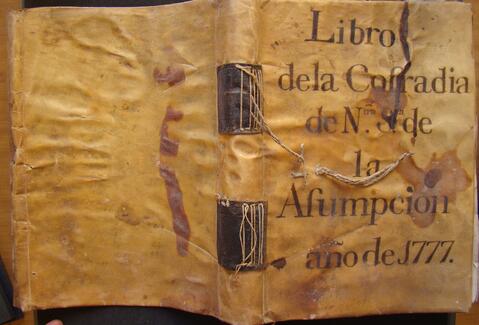 Libro
dela Cofradia
de N.ᵗʳᵃ S.ʳᵃ de
la
Asumpcion
año de 1777.